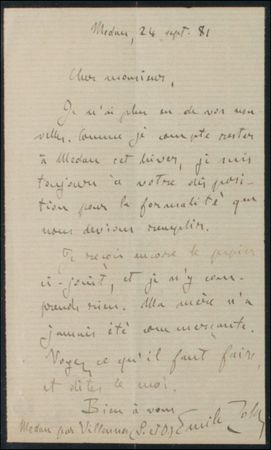 Medan, 24 sept. 81
Cher monsieur,
Je n'ai plus eu de vos nou
velles. Comme je compte rester
à Medan cet hiver, je suis
toujours à votre dis posi-
tion pour la formalité que
nous devions remplir.
Je reçois encore le papier
ci-joint, et je n'y com-
prends rien. Ma mère n'a
jamais été commerçante.
Voyez ce qu'il faut faire,
et dites le moi.
Bien à vous
Emile Zola
Medan par Villennes (S. & O.)